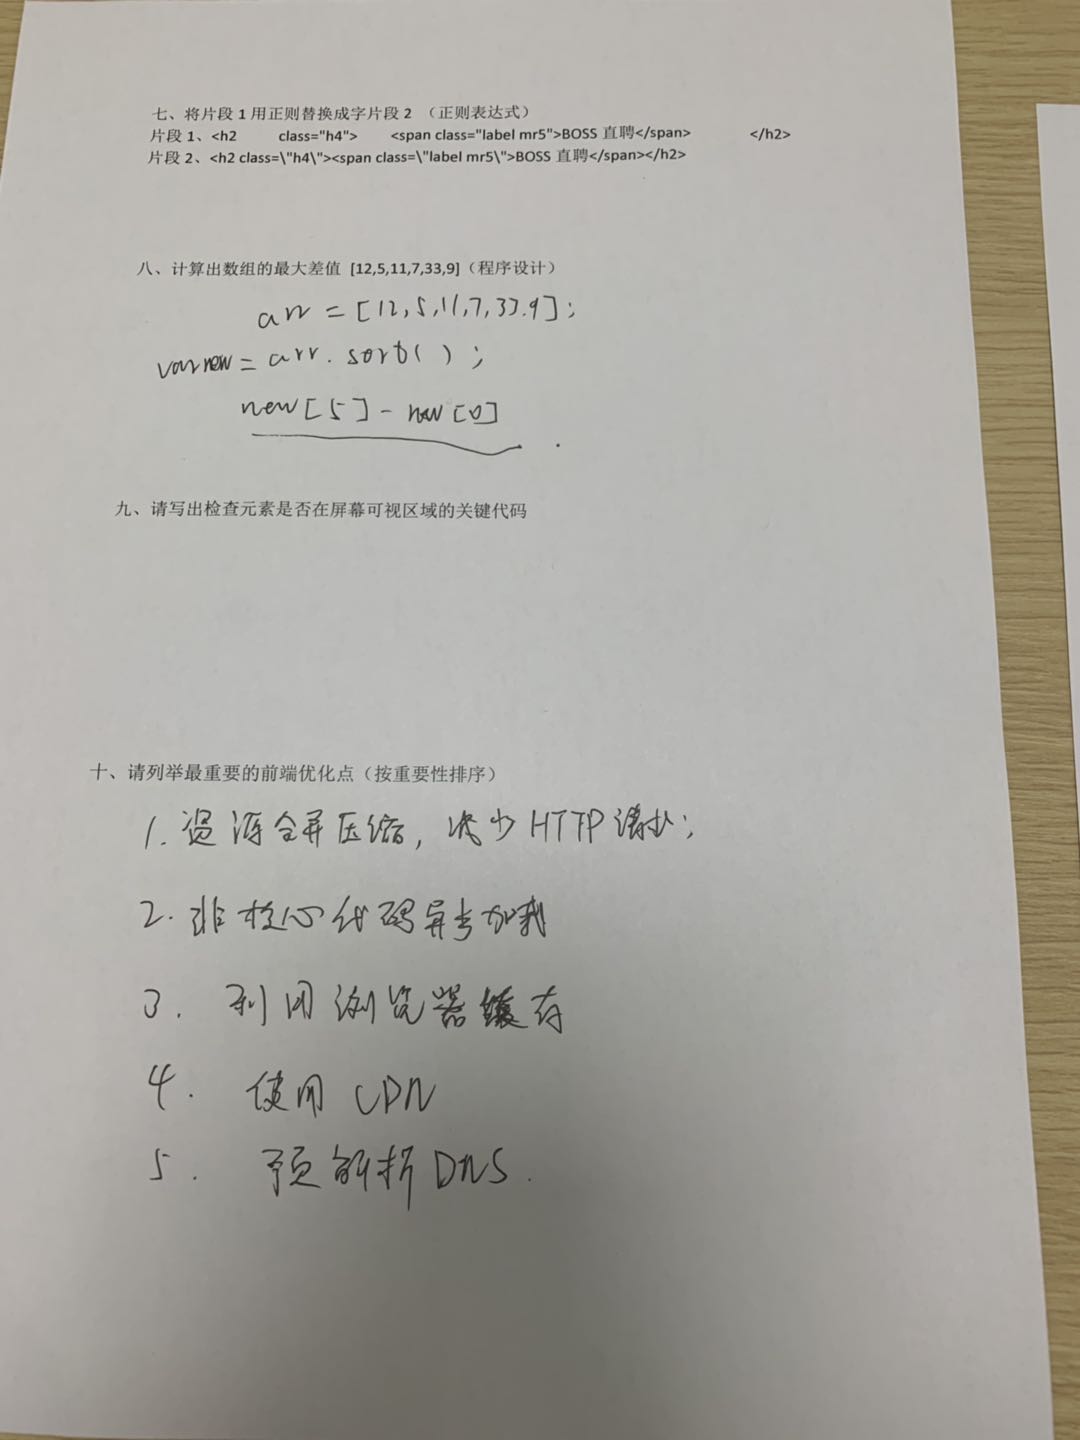 七、将片段 1 用正则替换成字片段 2 （正则表达式）
片段 1、<h2 class="h4"> <span class="label mr5">BOSS 直聘</span> </h2>
片段 2、<h2 class=\"h4\"><span class=\"label mr5\">BOSS 直聘</span></h2>
八、计算出数组的最大差值 [12,5,11,7,33,9]（程序设计）
arr = [12,5,11,7,33.9];
var new = arr.sort();
new[5] - new[0]
九、请写出检查元素是否在屏幕可视区域的关键代码
十、请列举最重要的前端优化点（按重要性排序）
1. 资源合并压缩, 减少HTTP请求;
2. 非核心代码异步加载
3. 利用浏览器缓存
4. 使用CDN
5. 预解析DNS.